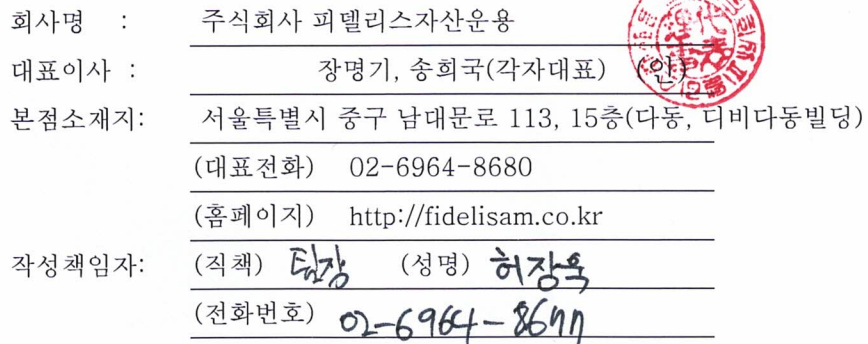 회사명 : 주식회사 피델리스자산운용
대표이사 : 장명기, 송희국(각자대표) (인)
본점소재지: 서울특별시 중구 남대문로 113, 15층(다동, 디비다동빌딩)
(대표전화) 02-6964-8680
(홈페이지) http://fidelisam.co.kr
작성책임자: (직책) 팀장 (성명) 허장욱
(전화번호) 02-6964-8677